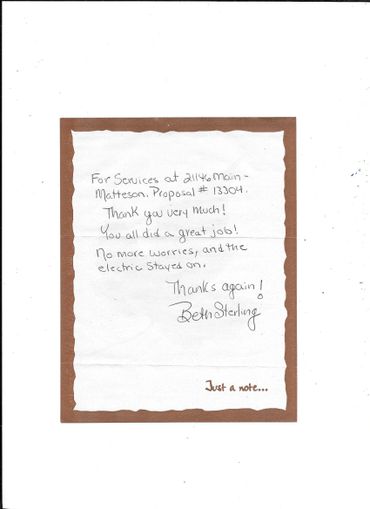 For Services at 21146 Main -
Matteson. Proposal # 13304.
Thank you very much!
You all did a great job!
No more worries, and the
electric stayed on.
Thanks again!
Beth Sterling
Just a note...